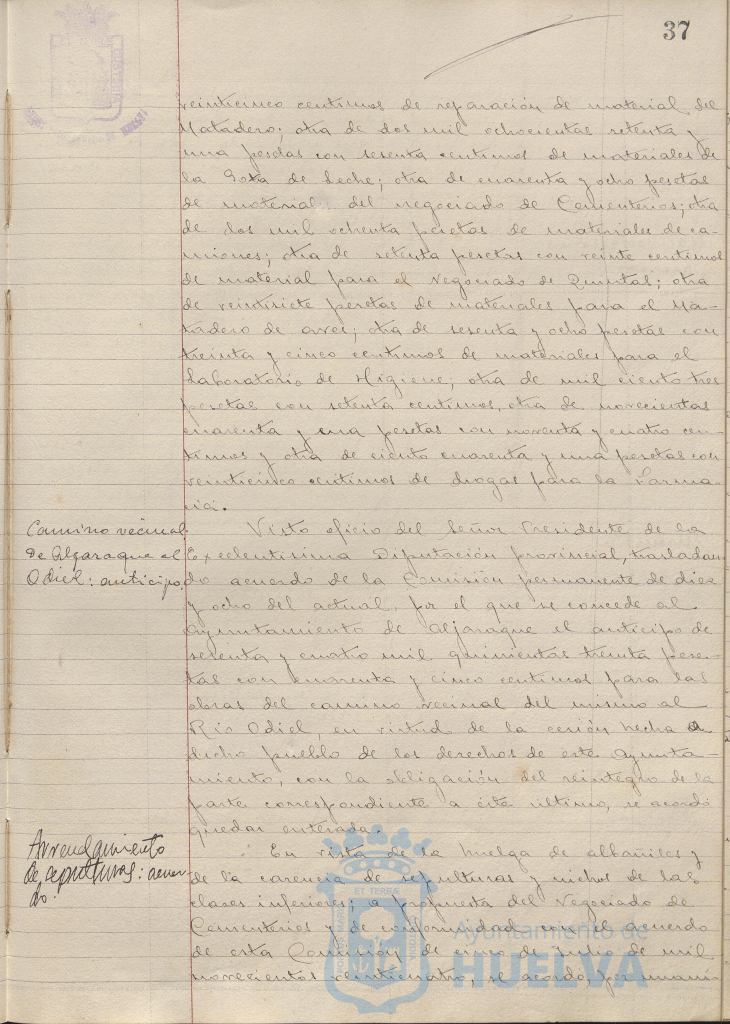 37
veinticinco centimos de reparación de material del
Matadero; otra de dos mil ochocientas setenta y
una pesetas con sesenta centimos de materiales de
la Gota de Leche; otra de cuarenta y ocho pesetas
de material del negociado de Cementerios; otra
de dos mil ochenta pesetas de materiales de ca-
miones; otra de setenta pesetas con veinte centimos
de material para el Negociado de Quintas; otra
de veintisiete pesetas de materiales para el Ma-
tadero de aves; otra de sesenta y ocho pesetas con
treinta y cinco centimos de materiales para el
Laboratorio de Higiene; otra de mil ciento tres
pesetas con setenta centimos, otra de novecientas
cuarenta y una pesetas con noventa y cuatro cen-
timos y otra de ciento cuarenta y una pesetas con
veinticinco centimos de drogas para la Farma-
cia.
Camino vecinal
de Aljaraque al
Odiel: anticipo.
Visto oficio del Señor Presidente de la
Excelentisima Diputación provincial, trasladan-
do acuerdo de la Comisión permanente de diez
y ocho del actual, por el que se concede al
Ayuntamiento de Aljaraque el anticipo de
sesenta y cuatro mil quinientas treinta pese-
tas con cuarenta y cinco centimos para las
obras del camino vecinal del mismo al
Rio Odiel, en virtud de la cesión hecha a
dicho pueblo de los derechos de este Ayunta-
miento, con la obligación del reintegro de la
parte correspondiente a este ultimo, se acordó
quedar enterada.
Arrendamiento
de sepulturas: acuer-
do.
En vista de la huelga de albañiles y
de la carencia de sepulturas y nichos de las
clases inferiores; a propuesta del Negociado de
Cementerios y de conformidad con el acuerdo
de esta Comisión de cinco de Julio de mil
novecientos veinticuatro, se acordó, por unani-
Ayuntamiento de
HUELVA